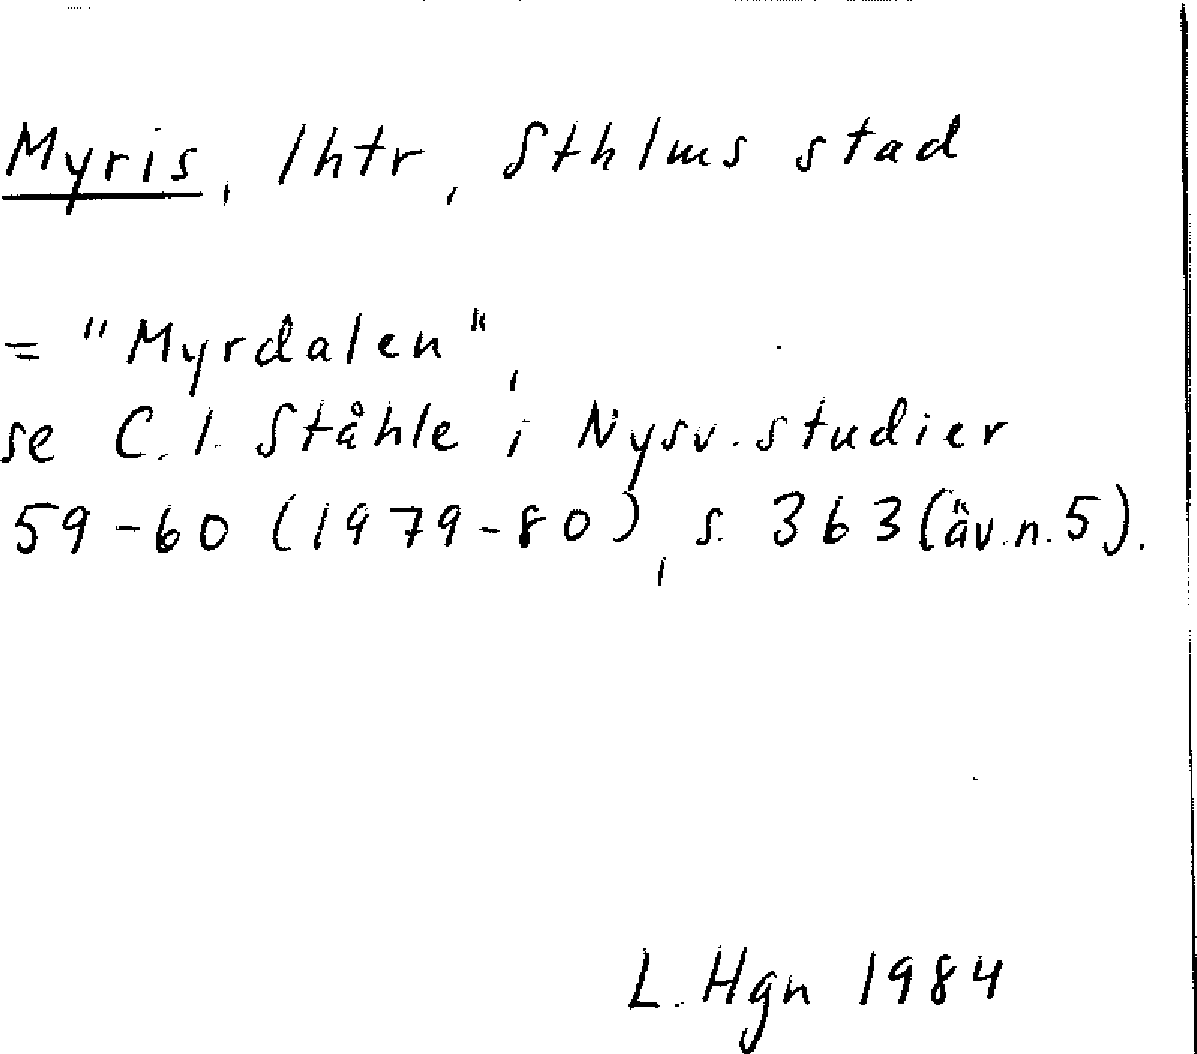 Myris, lhtr, Sthlms stad
= "Myrdalen",
se C. I. Ståhle i Nysv. studier
59-60 (1979-80), s. 363 (äv. n. 5).
L. Hgn 1984